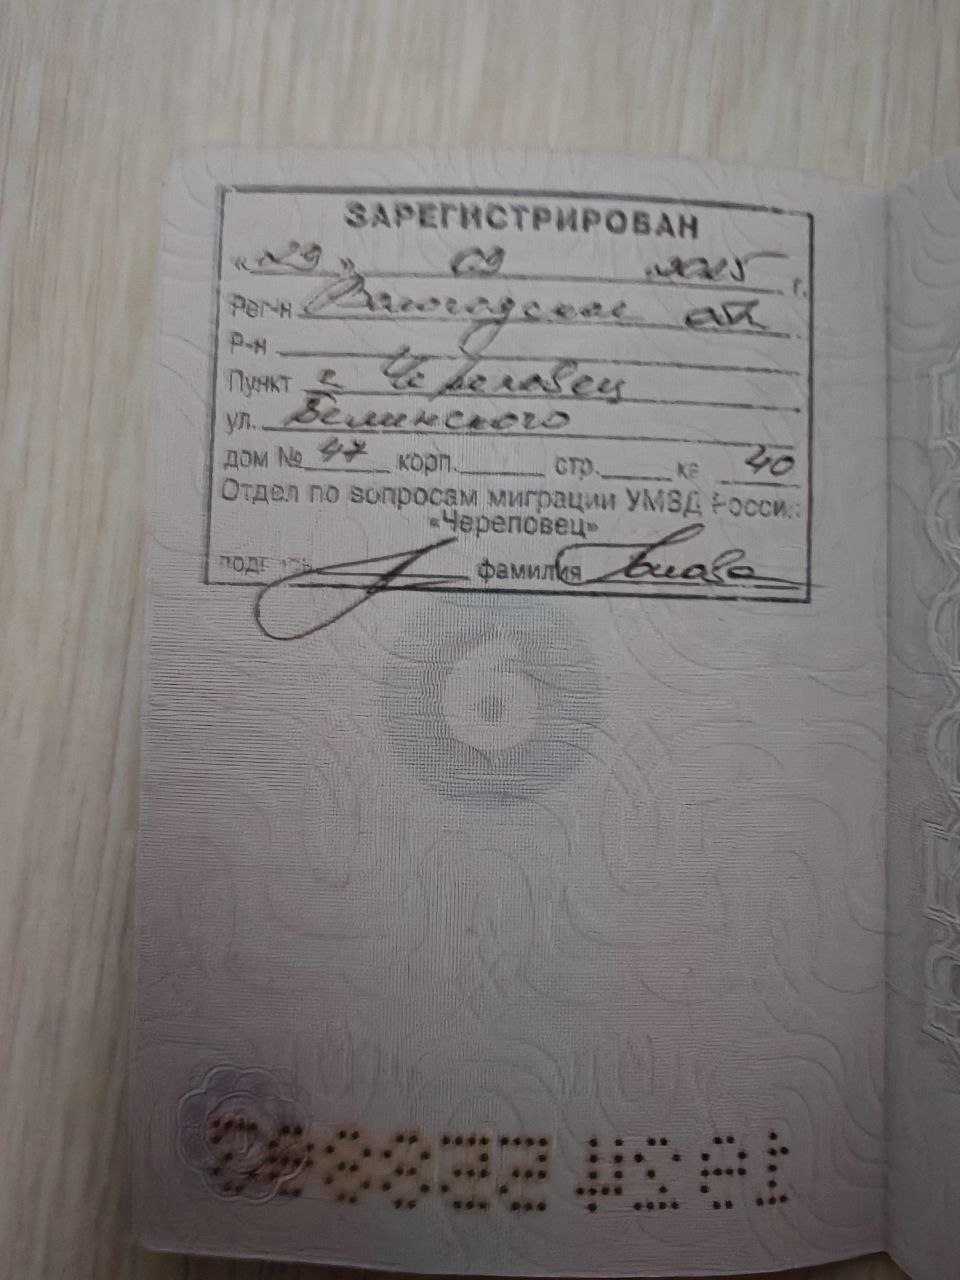 ЗАРЕГИСТРИРОВАН
«29» 09 2025 г.
Рег-н Вологодская обл
Р-н
Пункт г Череповец
ул. Белинского
дом № 47 корп. стр. кв 40
Отдел по вопросам миграции УМВД России
«Череповец»
подпись фамилия